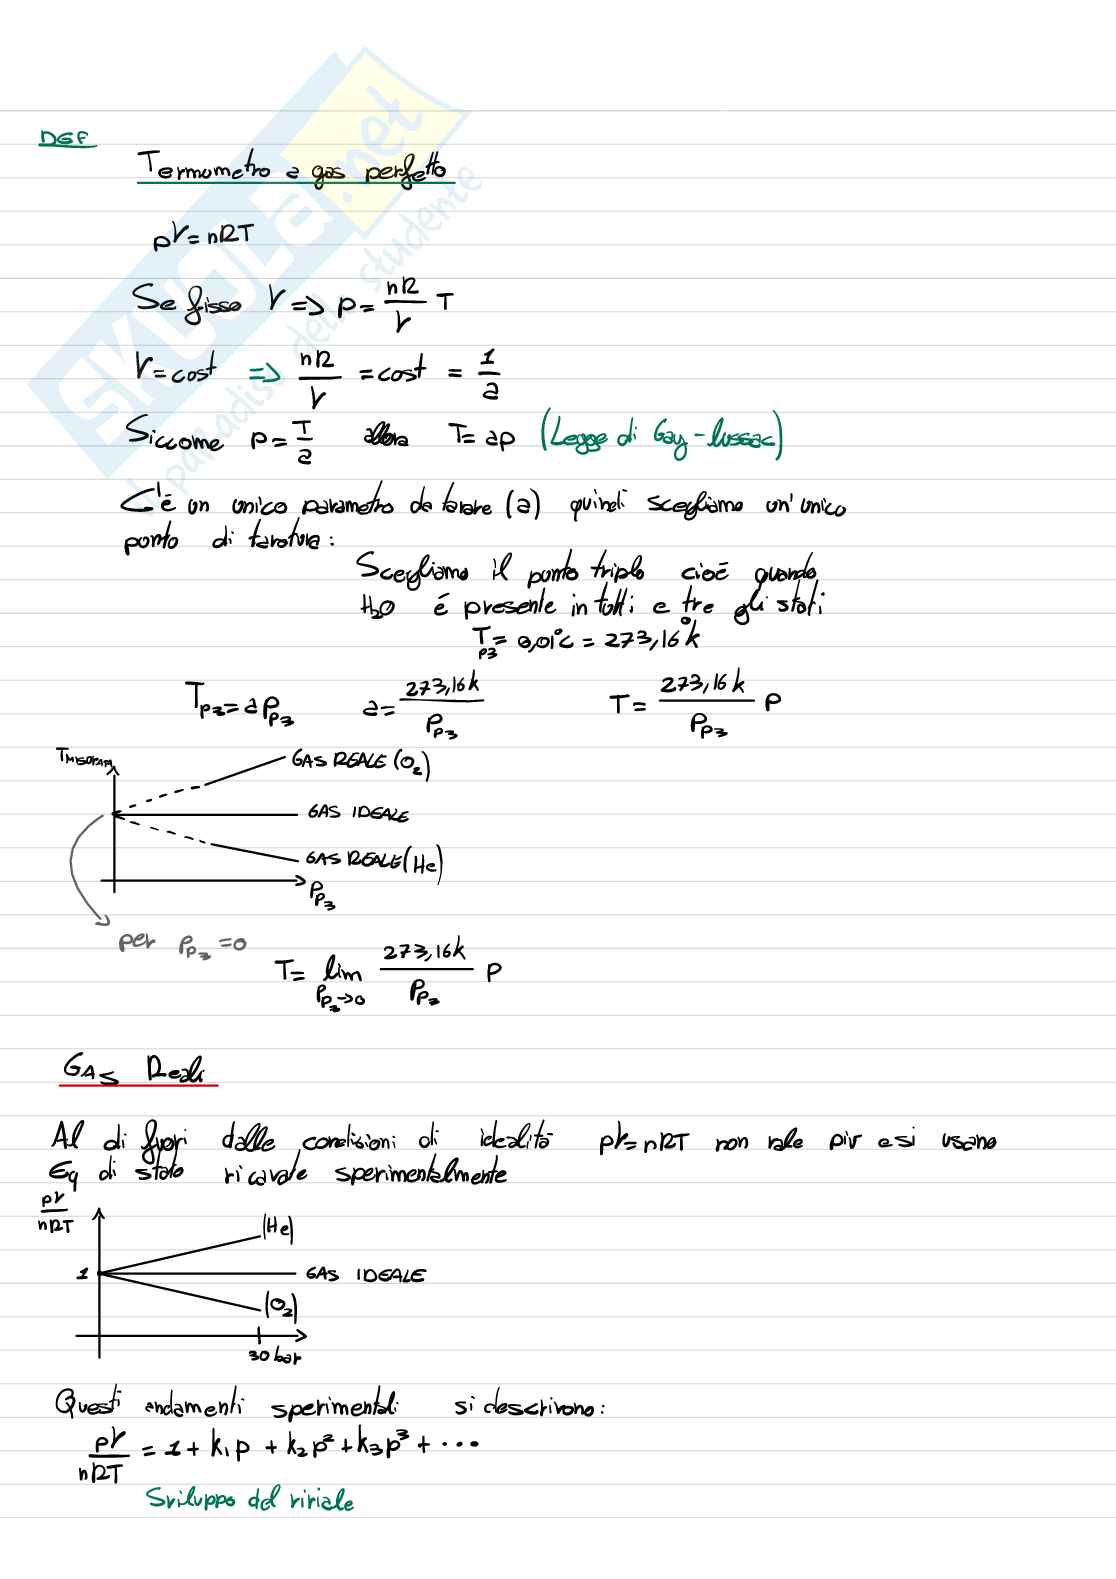 DGF
Termometro a gas perfetto
pV = nRT
Se fisso V => p = nR/V T
V = cost => nR/V = cost = 1/a
Siccome p = T/a allora T = ap (Legge di Gay-lussac)
C'è un unico parametro da tarare (a) quindi scegliamo un'unico
punto di taratura:
Scegliamo il punto triplo cioè quando
H2O è presente in tutti e tre gli stati
T_P3 = 0,01°C = 273,16°K
T_P3 = a P_P3    a = 273,16k / P_P3    T = 273,16k / P_P3 P
T MISURATA
GAS REALE (O2)
GAS IDEALE
GAS REALE (He)
P_P3
per P_P3 = 0
T = lim P_P3→0 273,16k / P_P3 P
GAS Reali
Al di fuori dalle condizioni di idealità pV = nRT non vale più e si usano
Eq di stato ricavate sperimentalmente
pV/nRT
(He)
1
GAS IDEALE
(O2)
30 bar
Questi andamenti sperimentali si descrivono:
pV/nRT = 1 + k1 p + k2 p² + k3 p³ + ...
Sviluppo del viriale
SKUOLA.net
il paradiso dello studente